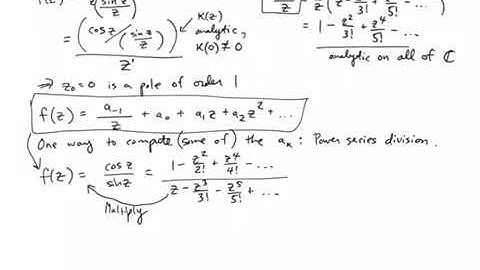 z(sin z / z)
= (cos z / (sin z / z)) / z'
K(z) analytic,
K(0) ≠ 0
z = z (z - z²/3! + z⁴/5! - ...)
= 1 - z²/3! + z⁴/5! - ...
analytic on all of ℂ
⇒ z₀=0 is a pole of order 1
f(z) = a₋₁/z + a₀ + a₁z + a₂z² + ...
One way to compute (some of) the aₖ: Power series division.
f(z) = cos z / sin z = (1 - z²/2! + z⁴/4! - ...) / (z - z³/3! - z⁵/5! + ...)
Multiply